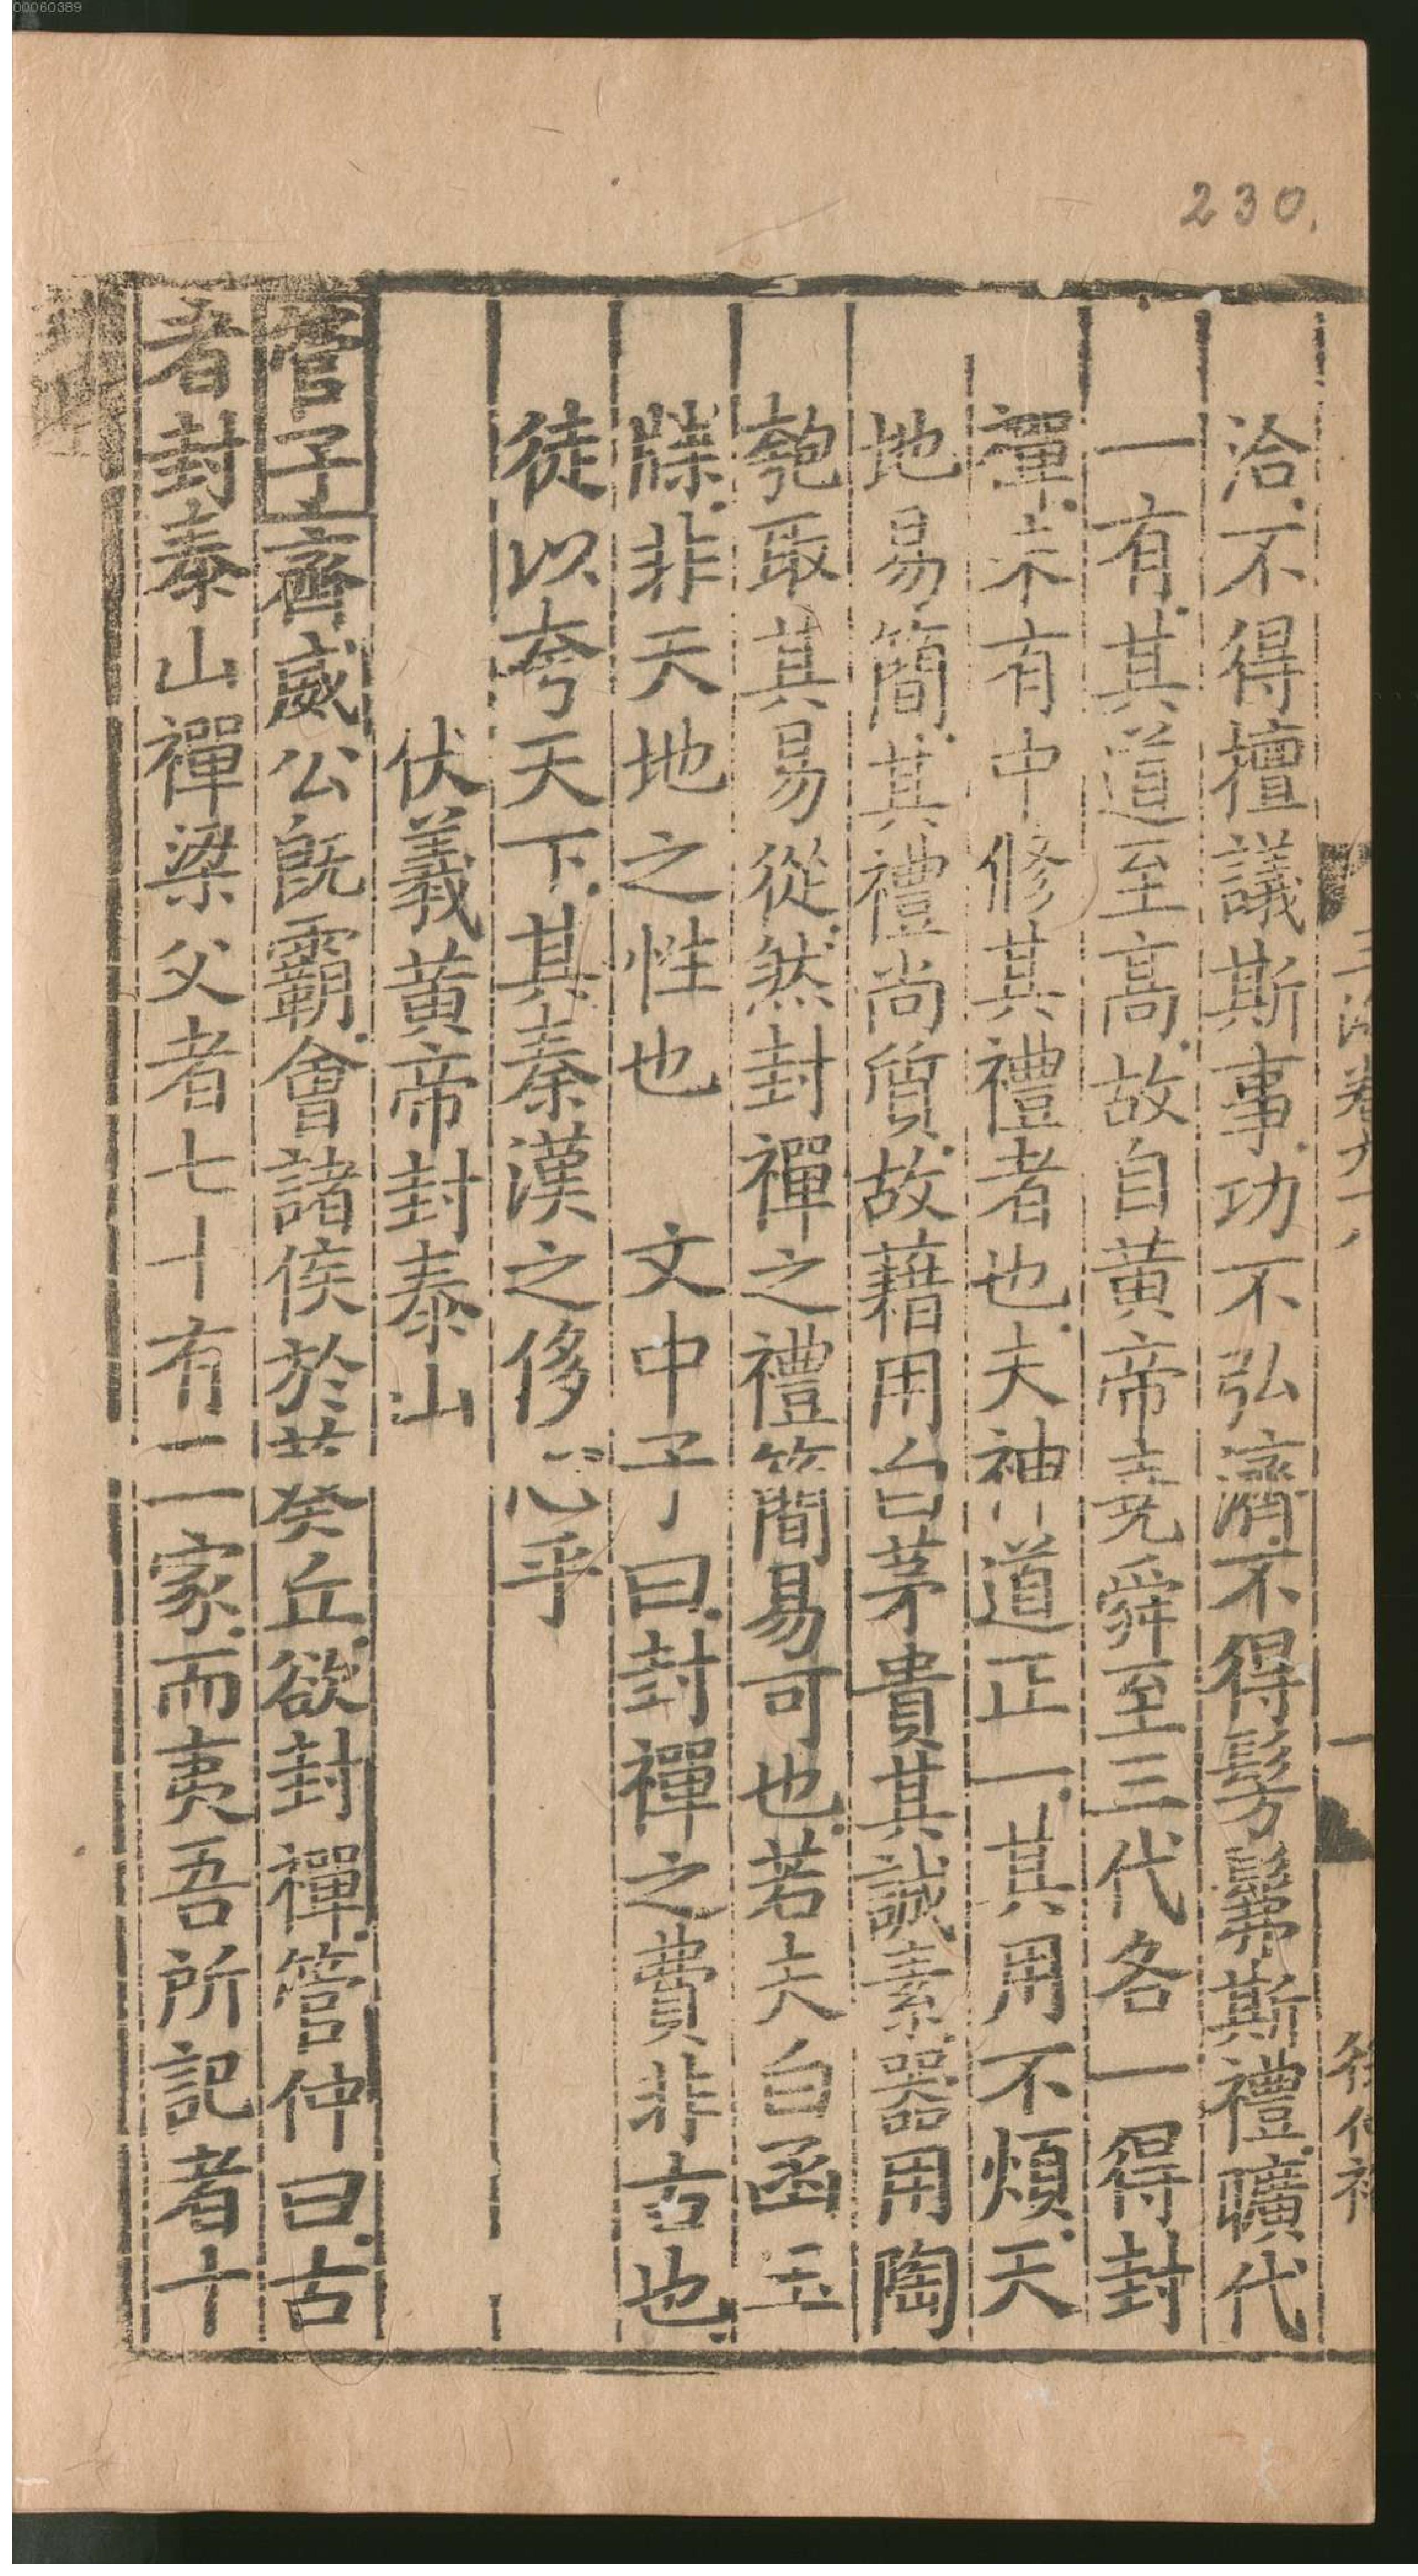 00060389
230.
洽不得擅議斯事功不弘濟不得髣髴斯禮曠代
一有其道至高故自黃帝堯舜至三代各一得封
禪未有中修其禮者也夫神道正一其用不煩天
地易簡其禮尚質故藉用白茅貴其誠素器用陶
匏取其易從然封禪之禮簡易可也若夫白函玉
牒非天地之性也　文中子曰封禪之費非古也
徒以夸天下其秦漢之侈心乎
伏羲黃帝封泰山
管子齊威公旣霸會諸侯於葵丘欲封禪管仲曰古
者封泰山禪梁父者七十有二家而夷吾所記者十